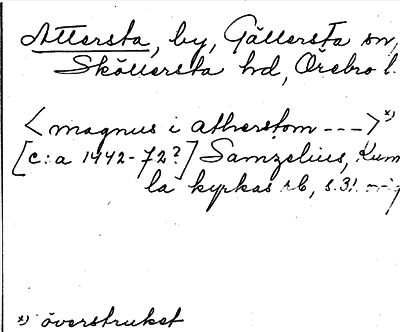 Attersta, by, Gällersta sn,
Sköllersta hd, Örebro l.
<magnus i atherstom --->*)
[c:a 1442-72?] Samzelius, Kum
la kyrkas rb, s.31.
*) överstruket